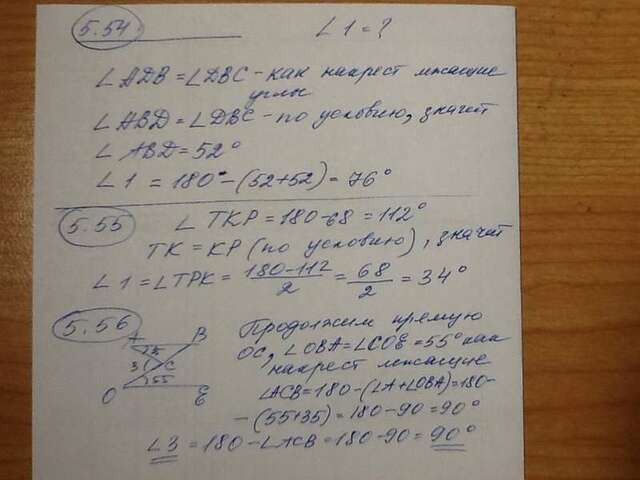 5.54. ∠1 = ?
∠ADB = ∠DBC - как накрест лежащие
углы
∠ABD = ∠DBC - по условию, значит
∠ABD = 52°
∠1 = 180° - (52+52) = 76°
5.55 ∠TKP = 180-68 = 112°
TK = KP (по условию), значит
∠1 = ∠TPK = (180-112)/2 = 68/2 = 34°
5.56 Продолжим прямую
OC, ∠OBA = ∠COE = 55° как
накрест лежащие
∠ACB = 180 - (∠A + ∠OBA) = 180-
- (55+35) = 180 - 90 = 90°
∠3 = 180 - ∠ACB = 180 - 90 = 90°
A B
3 C
55
O E